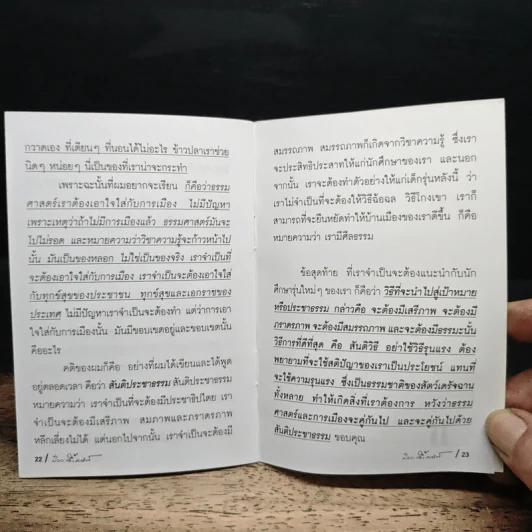 กวาดเอง ที่เตียนๆ ที่นอนได้ไม่อะไร ข้าวปลาเราช่วย
นิดๆ หน่อยๆ นี่เป็นของที่เราน่าจะกระทำ
เพราะฉะนั้นที่ผมอยากจะเรียน ก็คือว่าธรรม
ศาสตร์เราต้องเอาใจใส่กับการเมือง ไม่มีปัญหา
เพราะเหตุว่าถ้าไม่มีการเมืองแล้ว ธรรมศาสตร์มันจะ
ไปไม่รอด และหมายความว่าวิชาความรู้จะก้าวหน้าไป
นั้น มันเป็นของหลอก ไม่ใช่เป็นของจริง เราจำเป็นที่
จะต้องเอาใจใส่กับการเมือง เราจำเป็นจะต้องเอาใจใส่
กับทุกข์สุขของประชาชน ทุกข์สุขและเอกราชของ
ประเทศ ไม่มีปัญหาเราจำเป็นจะต้องทำ แต่ว่าการเอา
ใจใส่กับการเมืองนั้น มันมีขอบเขตอยู่และขอบเขตนั้น
คืออะไร
คติของผมก็คือ อย่างที่ผมได้เขียนและได้พูด
อยู่ตลอดเวลา คือว่า สันติประชาธรรม สันติประชาธรรม
หมายความว่า เราจำเป็นที่จะต้องมีประชาธิปไตย เรา
จำเป็นจะต้องมีเสรีภาพ สมภาพและภราดรภาพ
หลีกเลี่ยงไม่ได้ แต่นอกไปจากนั้น เราจำเป็นจะต้องมี
22 /
สมรรถภาพ สมรรถภาพก็เกิดจากวิชาความรู้ ซึ่งเรา
จะประสิทธิประสาทให้แก่นักศึกษาของเรา และนอก
จากนั้น เราจะต้องทำตัวอย่างให้แก่เด็กรุ่นหลังนี้ ว่า
เราไม่จำเป็นที่จะต้องให้วิธีฉ้อฉล วิธีโกงเขา เราก็
สามารถที่จะยืนหยัดทำให้บ้านเมืองของเราดีขึ้น ก็คือ
หมายความว่า เรามีศีลธรรม
ข้อสุดท้าย ที่เราจำเป็นจะต้องแนะนำกับนัก
ศึกษารุ่นใหม่ๆ ของเรา ก็คือว่า วิธีที่จะนำไปสู่เป้าหมาย
หรือประชาธรรม กล่าวคือ จะต้องมีเสรีภาพ จะต้องมี
ภราดรภาพ จะต้องมีสมรรถภาพ และจะต้องมีธรรมะนั้น
วิธีการที่ดีที่สุด คือ สันติวิธี อย่าใช้วิธีรุนแรง ต้อง
พยายามที่จะใช้สติปัญญาของเราเป็นประโยชน์ แทนที่
จะใช้ความรุนแรง ซึ่งเป็นธรรมชาติของสัตว์เดรัจฉาน
ทั้งหลาย ทำให้เกิดสิ่งที่เราต้องการ หวังว่าธรรม
ศาสตร์และการเมืองจะคู่กันไป และจะคู่กันไปด้วย
สันติประชาธรรม ขอบคุณ
/ 23